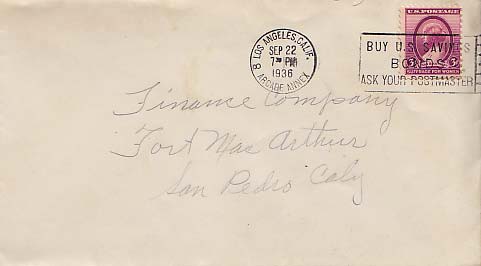 U.S. POSTAGE
LOS ANGELES, CALIF.
SEP 22
7 PM
1936
ARCADE ANNEX
8
BUY U.S. SAVINGS
BONDS
ASK YOUR POSTMASTER
SUFFRAGE FOR WOMEN
Finance Company
Fort Mac Arthur
San Pedro Caly